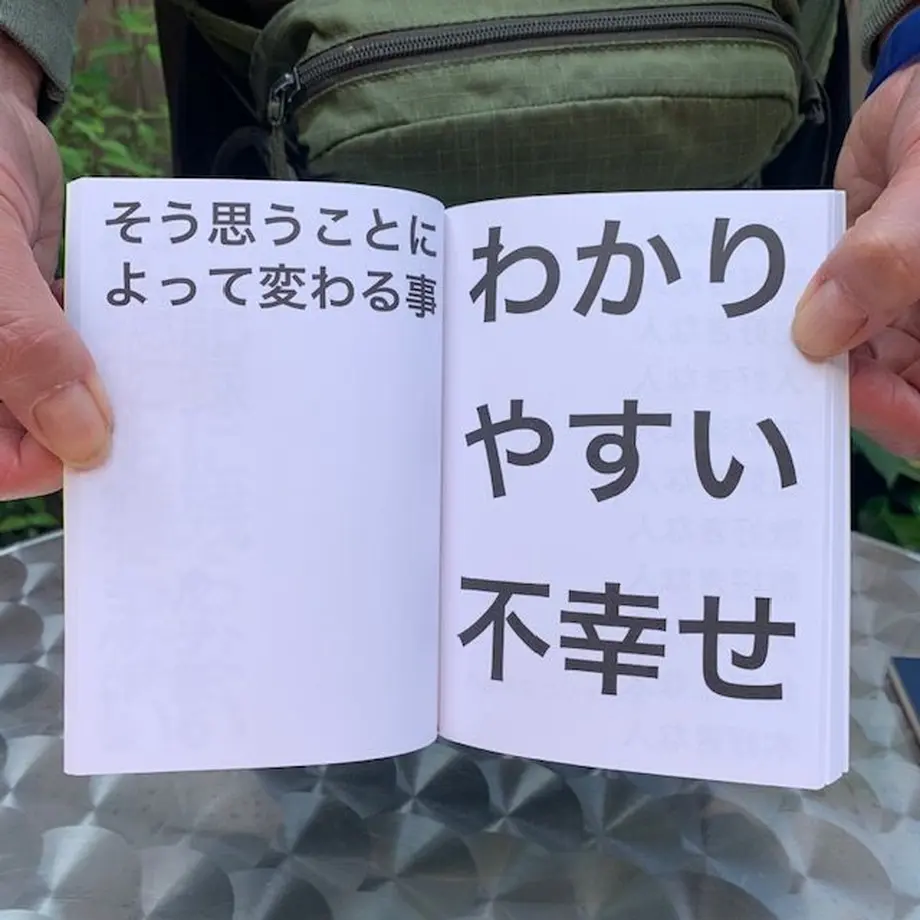 そう思うことに
よって変わる事
わかり
やすい
不幸せ